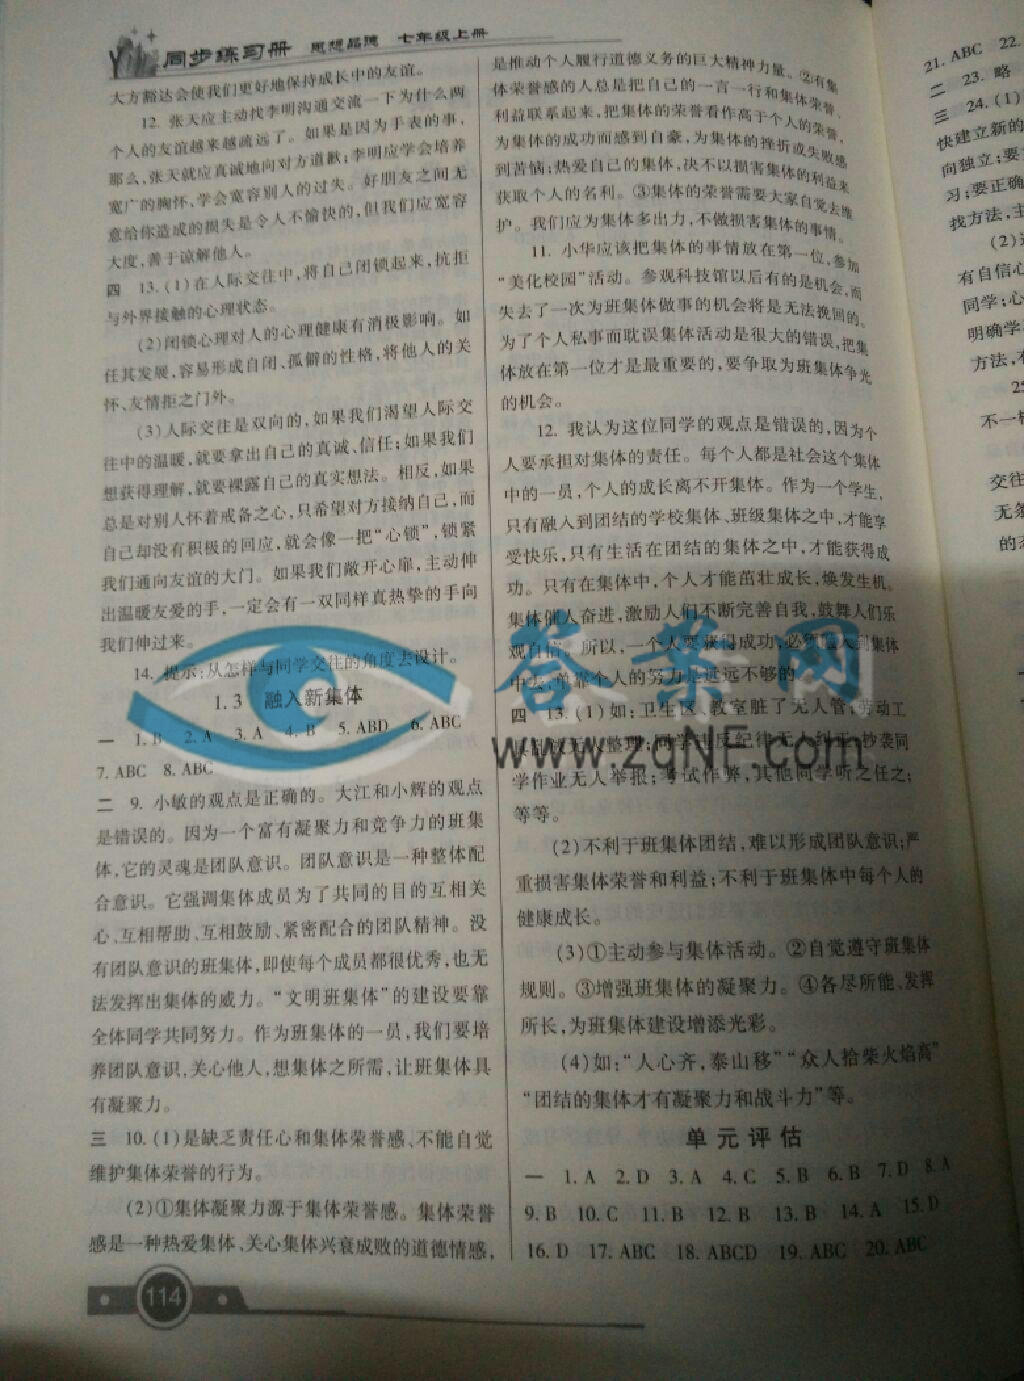 同步练习册 思想品德 七年级上册
大方豁达会使我们更好地保持成长中的友谊。
12. 张天应主动找李明沟通交流一下为什么两
个人的友谊越来越疏远了。如果是因为手表的事,
那么,张天就应真诚地向对方道歉;李明应学会培养
宽广的胸怀,学会宽容别人的过失。好朋友之间无
意给你造成的损失是令人不愉快的,但我们应宽容
大度,善于谅解他人。
四 13. (1)在人际交往中,将自己闭锁起来,抗拒
与外界接触的心理状态。
(2)闭锁心理对人的心理健康有消极影响。如
任其发展,容易形成自闭、孤僻的性格,将他人的关
怀、友情拒之门外。
(3)人际交往是双向的,如果我们渴望人际交
往中的温暖,就要拿出自己的真诚、信任;如果我们
想获得理解,就要裸露自己的真实想法。相反,如果
总是对别人怀着戒备之心,只希望对方接纳自己,而
自己却没有积极的回应,就会像一把“心锁”,锁紧
我们通向友谊的大门。如果我们敞开心扉,主动伸
出温暖友爱的手,一定会有一双同样真热挚的手向
我们伸过来。
14. 提示:从怎样与同学交往的角度去设计。
1.3 融入新集体
一 1. B 2. A 3. A 4. B 5. ABD 6. ABC
7. ABC 8. ABC
二 9. 小敏的观点是正确的。大江和小辉的观点
是错误的。因为一个富有凝聚力和竞争力的班集
体,它的灵魂是团队意识。团队意识是一种整体配
合意识。它强调集体成员为了共同的目的互相关
心、互相帮助、互相鼓励、紧密配合的团队精神。没
有团队意识的班集体,即使每个成员都很优秀,也无
法发挥出集体的威力。“文明班集体”的建设要靠
全体同学共同努力。作为班集体的一员,我们要培
养团队意识,关心他人,想集体之所需,让班集体具
有凝聚力。
三 10. (1)是缺乏责任心和集体荣誉感、不能自觉
维护集体荣誉的行为。
(2)①集体凝聚力源于集体荣誉感。集体荣誉
感是一种热爱集体、关心集体兴衰成败的道德情感,
114
是推动个人履行道德义务的巨大精神力量。②有集
体荣誉感的人总是把自己的一言一行和集体荣誉、
利益联系起来,把集体的荣誉看作高于个人的荣誉,
为集体的成功而感到自豪,为集体的挫折或失败感
到苦恼;热爱自己的集体,决不以损害集体的利益来
获取个人的名利。③集体的荣誉需要大家自觉去维
护。我们应为集体多出力,不做损害集体的事情。
11. 小华应该把集体的事情放在第一位,参加
“美化校园”活动。参观科技馆以后有的是机会,而
失去了一次为班集体做事的机会将是无法挽回的。
为了个人私事而耽误集体活动是很大的错误,把集
体放在第一位才是最重要的,要争取为班集体争光
的机会。
12. 我认为这位同学的观点是错误的,因为个
人要承担对集体的责任。每个人都是社会这个集体
中的一员,个人的成长离不开集体。作为一个学生,
只有融入到团结的学校集体、班级集体之中,才能享
受快乐,只有生活在团结的集体之中,才能获得成
功。只有在集体中,个人才能茁壮成长,焕发生机。
集体催人奋进,激励人们不断完善自我,鼓舞人们乐
观自信。所以,一个人要获得成功,必须融入到集体
中去,单靠个人的努力是远远不够的。
四 13. (1)如:卫生区、教室脏了无人管;劳动工
整理;同学 反纪律无人纠正;抄袭同
学作业无人举报;考试作弊,其他同学听之任之;
等等。
(2)不利于班集体团结,难以形成团队意识;严
重损害集体荣誉和利益;不利于班集体中每个人的
健康成长。
(3)①主动参与集体活动。②自觉遵守班集体
规则。③增强班集体的凝聚力。④各尽所能、发挥
所长,为班集体建设增添光彩。
(4)如:“人心齐,泰山移”“众人拾柴火焰高”
“团结的集体才有凝聚力和战斗力”等。
单元评估
一 1. A 2. D 3. A 4. C 5. B 6. B 7. D 8. A
9. B 10. C 11. B 12. B 13. B 14. A 15. D
16. D 17. ABC 18. ABCD 19. ABC 20. ABC
答案网
www.zqNF.com
21. ABC 22.
二 23. 略
三 24. (1)
快建立新的
向独立;要
习;要正确
找方法,主
(2)
有自信心
同学;心
明确学
方法,不
25
不一样
交往
无须
的